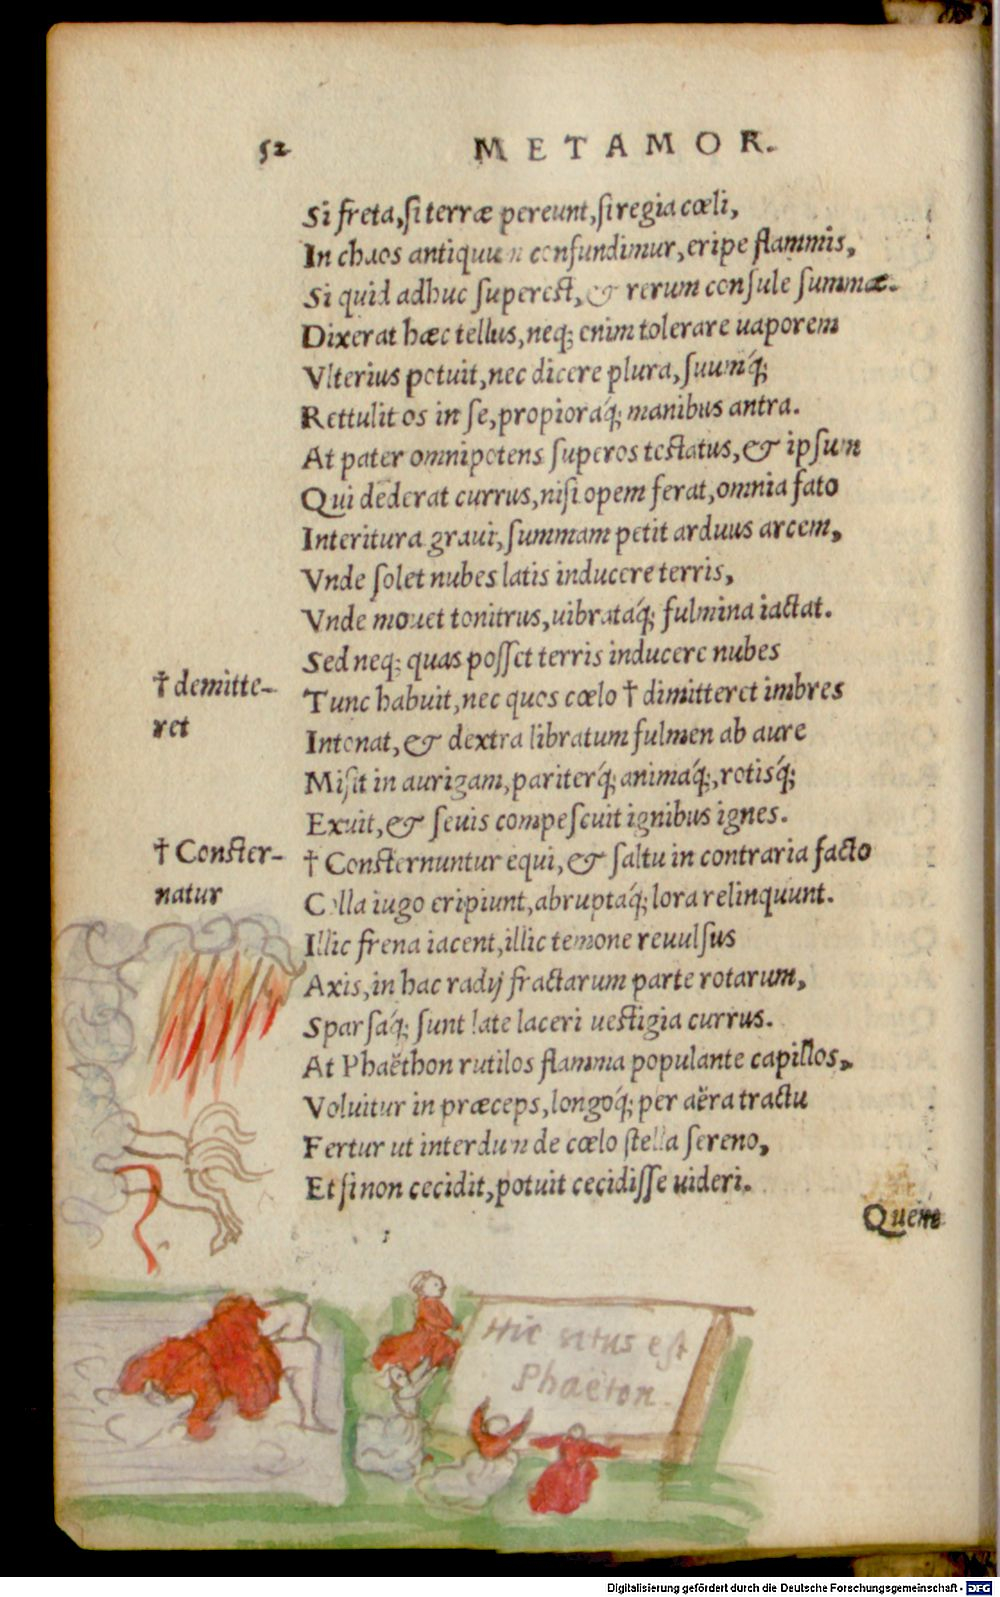 52
METAMOR.
Si freta, si terræ pereunt, si regia cœli,
In chaos antiquum confundimur, eripe flammis,
Si quid adhuc superest, & rerum consule summæ.
Dixerat hæc tellus, neq; enim tolerare uaporem
Vlterius potuit, nec dicere plura, suumq́;
Rettulit os in se, propioraq́; manibus antra.
At pater omnipotens superos testatus, & ipsum
Qui dederat currus, nisi opem ferat, omnia fato
Interitura graui, summam petit arduus arcem,
Vnde solet nubes latis inducere terris,
Vnde mouet tonitrus, uibrataq́; fulmina iactat.
Sed neq; quas posset terris inducere nubes
† demitte-
ret
Tunc habuit, nec quos cœlo † dimitteret imbres
Intonat, & dextra libratum fulmen ab aure
Misit in aurigam, pariterq́; animaq́;, rotisq́;
Exuit, & seuis compescuit ignibus ignes.
† Conster-
natur
† Consternuntur equi, & saltu in contraria facto
Colla iugo eripiunt, abruptaq́; lora relinquunt.
Illic frena iacent, illic temone reuulsus
Axis, in hac radij fractarum parte rotarum,
Sparsaq́; sunt late laceri uestigia currus.
At Phaëthon rutilos flamma populante capillos,
Voluitur in præceps, longoq́; per aëra tractu
Fertur ut interdum de cœlo stella sereno,
Et si non cecidit, potuit cecidisse uideri.
Quem
Hic situs est
Phaëton
Digitalisierung gefördert durch die Deutsche Forschungsgemeinschaft - DFG